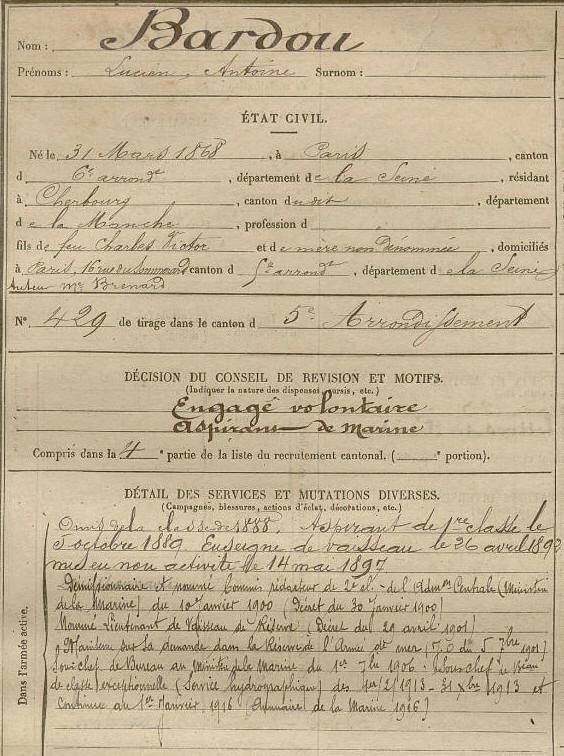 Nom : Bardou
Prénoms : Lucien, Antoine Surnom :
ÉTAT CIVIL.
Né le 31 Mars 1868, à Paris, canton
d 6e arrondt, département de la Seine, résidant
à Cherbourg, canton dudit, département
de la Manche, profession d
fils de feu Charles Victor et de mère non Dénommée, domiciliés
à Paris, 16 rue du Sommerard canton d 5e arrondt, département de la Seine
tuteur Mr Brenard
N° 429 de tirage dans le canton d 5e Arrondissement
DÉCISION DU CONSEIL DE REVISION ET MOTIFS.
(Indiquer la nature des dispenses, sursis, etc.)
Engagé volontaire
aspirant de Marine
Compris dans la 4e partie de la liste du recrutement cantonal. ( e portion).
DÉTAIL DES SERVICES ET MUTATIONS DIVERSES.
(Campagnes, blessures, actions d'éclat, décorations, etc.)
Dans l'armée active.
Omis de la classe de 1888. Aspirant de 1re classe le
5 octobre 1889. Enseigne de vaisseau le 26 avril 1892
mis en non activité le 14 mai 1897
Démissionnaire et nommé Commis rédacteur de 2e cl. de l'Admon Centrale (Ministère
de la Marine) du 10 Janvier 1900 (Décret du 30 Janvier 1900)
Nommé Lieutenant de Vaisseau de Réserve, Décret du 29 avril 1901)
Maintenu sur sa demande dans la Réserve de l'Armée de mer (J.O du 5 7bre 1901)
Sous chef de Bureau au Ministère de la Marine du 1er 7bre 1906. Sous chef de Beau
de classe exceptionnelle (Service hydrographique) des 1er/2/1913 - 31 Xbre 1913 et
Continue au 1er Janvier 1916 (Annuaire de la Marine 1916)